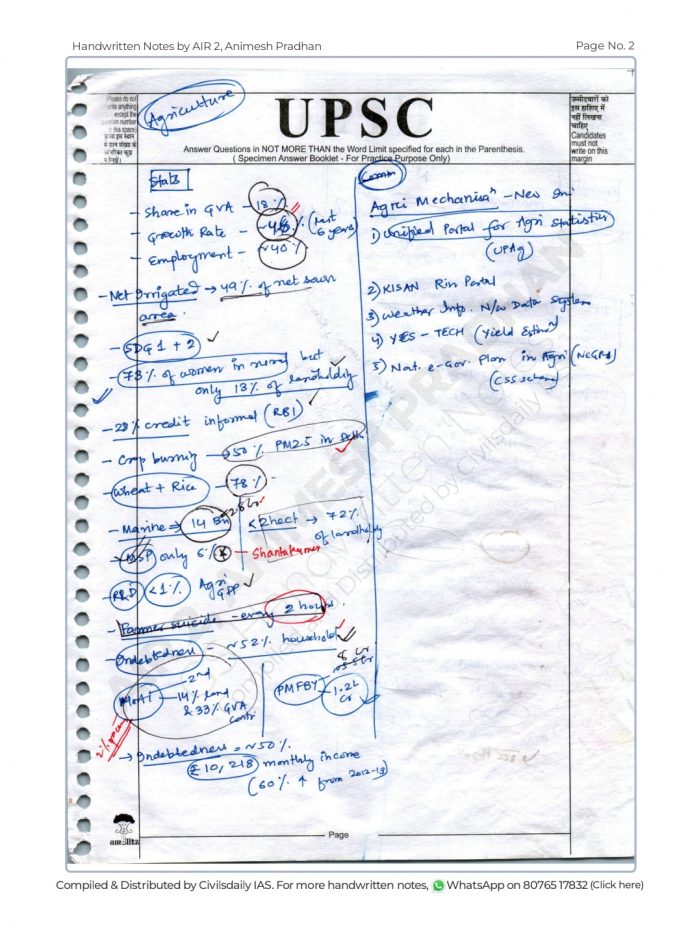 Handwritten Notes by AIR 2, Animesh Pradhan
Page No. 2
Please do not
write anything
except the
question number
in this space
Agriculture
UPSC
Answer Questions in NOT MORE THAN the Word Limit specified for each in the Parenthesis.
( Specimen Answer Booklet - For Practice Purpose Only)
उम्मीदवारों को
इस हाशिए में
नहीं लिखना
चाहिए
Candidates
must not
write on this
margin
Stats
- Share in GVA - 18%
- Growth Rate - (last 6 years)
- Employment - ~40%
- Net Irrigated → 49% of net sown
area.
- SDG 1 + 2
- 73% of women in rural but
only 13% of landholding
- 28% credit informal (RBI)
- Crop burning → 50% PM2.5 in Delhi
- Wheat + Rice - 78%
- Marine ⇒ 14 Bn
<2hect → 72%
of landholdg
- MSP only 6% - Shantakumar
- R&D <1% Agri
GDP
- Farmer suicide - every 2 hours.
- Indebtedness - ~52% household
MoAi - 2nd
- 14% land
& 33% GVA
contri
PMFBY - 1.2L
Cr
→ Indebtedness = ~50%.
₹ 10,218 monthly income
(60% ↑ from 2012-13)
Comm
Agri Mechanisaⁿ - New Ini
1) Unified Portal for Agri Statistics
(UPAg)
2) KISAN Rin Portal
3) Weather Info. N/w Data Systems
4) YES - TECH (Yield Estmn)
5) Nat. e-Gov. Plan in Agri (NeGPA)
(CSS scheme)
Page
Compiled & Distributed by Civilsdaily IAS. For more handwritten notes, WhatsApp on 8076517832 (Click here)